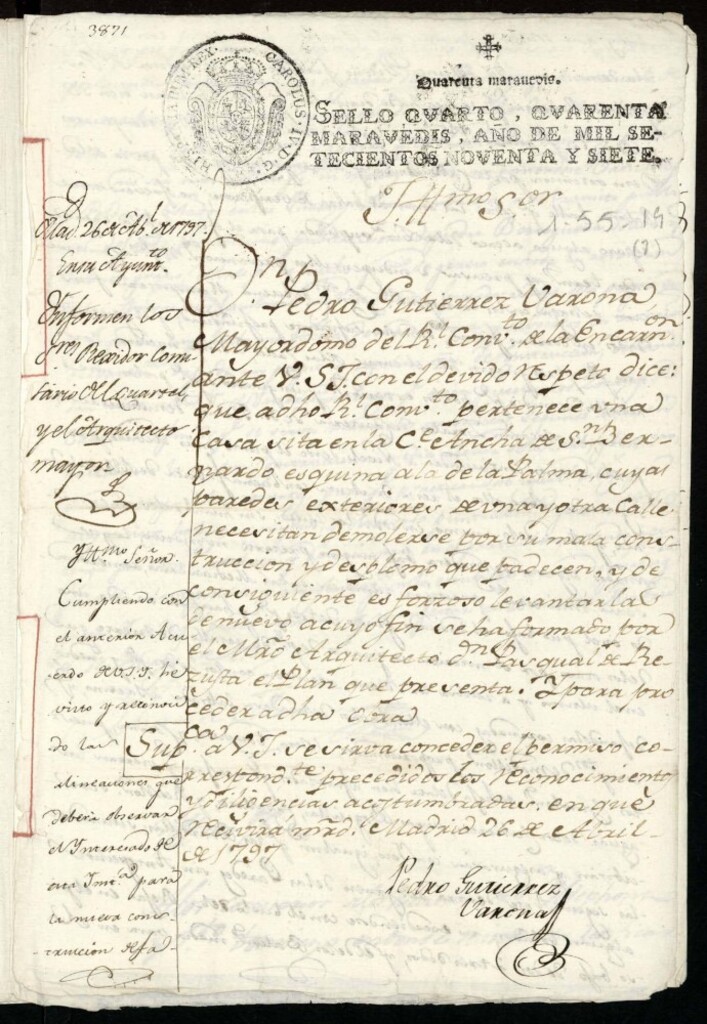 3871
CAROLUS IV D. G. HISPANIARUM REX
Quarenta maravedis.
SELLO QVARTO, QVARENTA
MARAVEDIS, AÑO DE MIL SE-
TECIENTOS NOVENTA Y SIETE.
Yllmo Sor
1-55-19
(1)
Mad. 26 de Ab.l de 1797.
En su Ayunt.to
Informen los
sres Rexidor Comi
sario del Quartel,
y el Arquitecto
mayor
Yllmo Señor.
Cumpliendo con
el anterior Acu
erdo de V.S.I. he
visto y reconoci
do las
alineaciones que
debera observar
el Interesado de
esta Inst.a para
la nueva cons-
truccion de fa-
Dn Pedro Gutierrez Varona
Mayordomo del Rl. Conv.to de la Encarn.on
ante V. S. I. con el devido respeto dice:
que a dho Rl. Conv.to pertenece una
Casa sita en la Ce. Ancha de Sn. Ber-
nardo esquina a la de la Palma, cuyas
paredes exteriores de una y otra Calle
necesitan demolerse por su mala cons-
truccion y desplomo que padecen, y de
consiguiente es forzoso levantarlas
de nuevo a cuyo fin se ha formado por
el Mro Arquitecto dn. Pasqual de Re-
zusta el Plan que presenta. Y para pro
ceder a dha obra
Sup.ca a V. I. se sirva conceder el permiso co-
rrespond.te precedidos los reconocimientos
y diligencias acostumbradas, en que
recivirá mrd. Madrid 26 de Abril
de 1797
Pedro Gutierrez
Varona